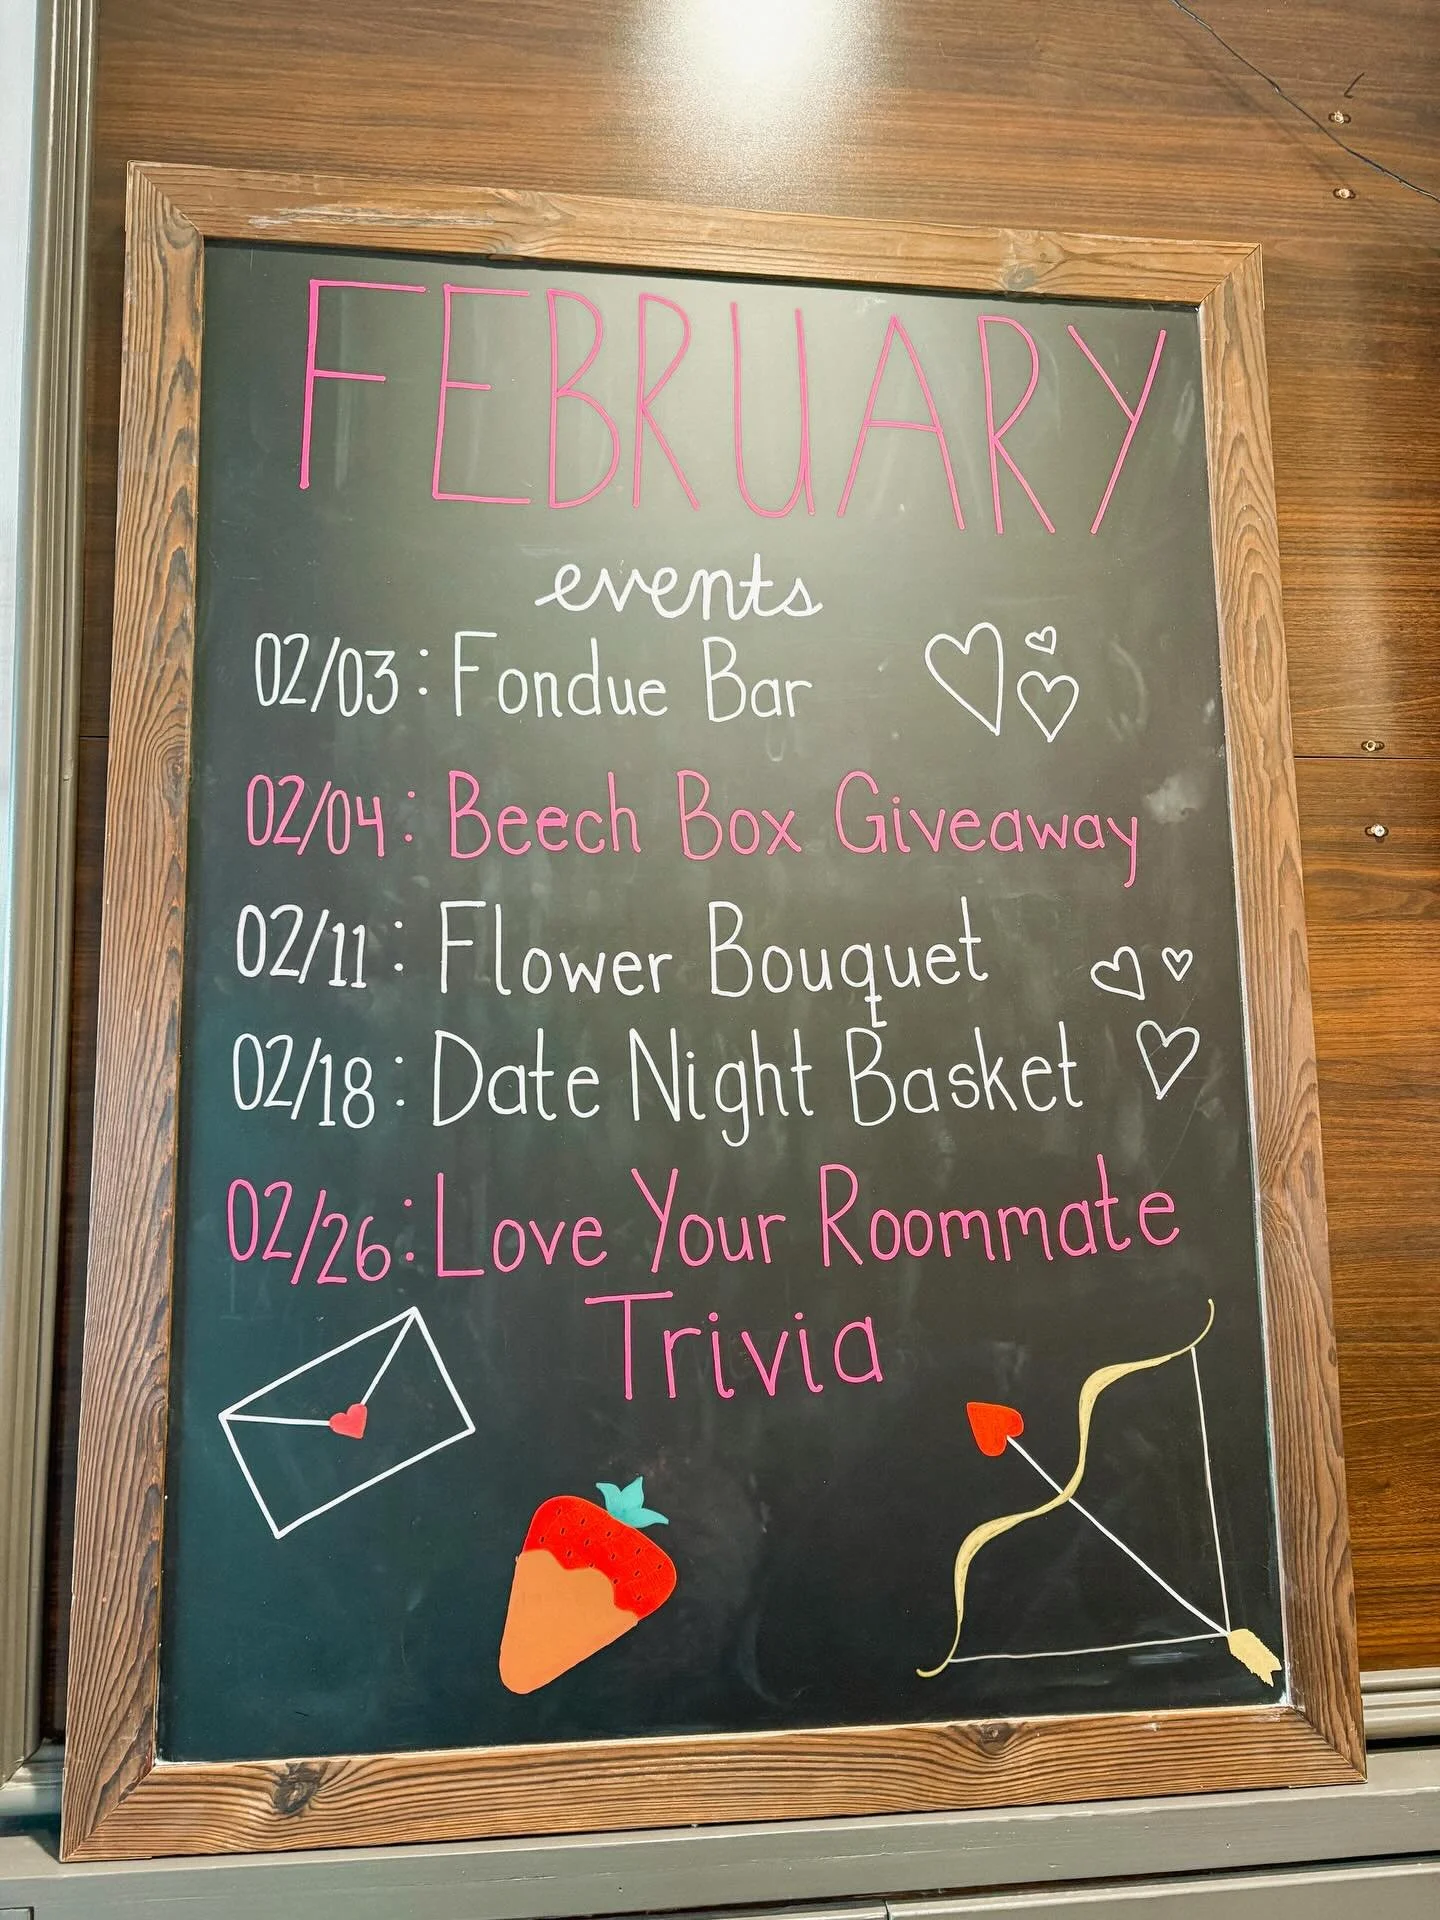 FEBRUARY
events
02/03: Fondue Bar
02/04: Beech Box Giveaway
02/11: Flower Bouquet
02/18: Date Night Basket
02/26: Love Your Roommate
Trivia